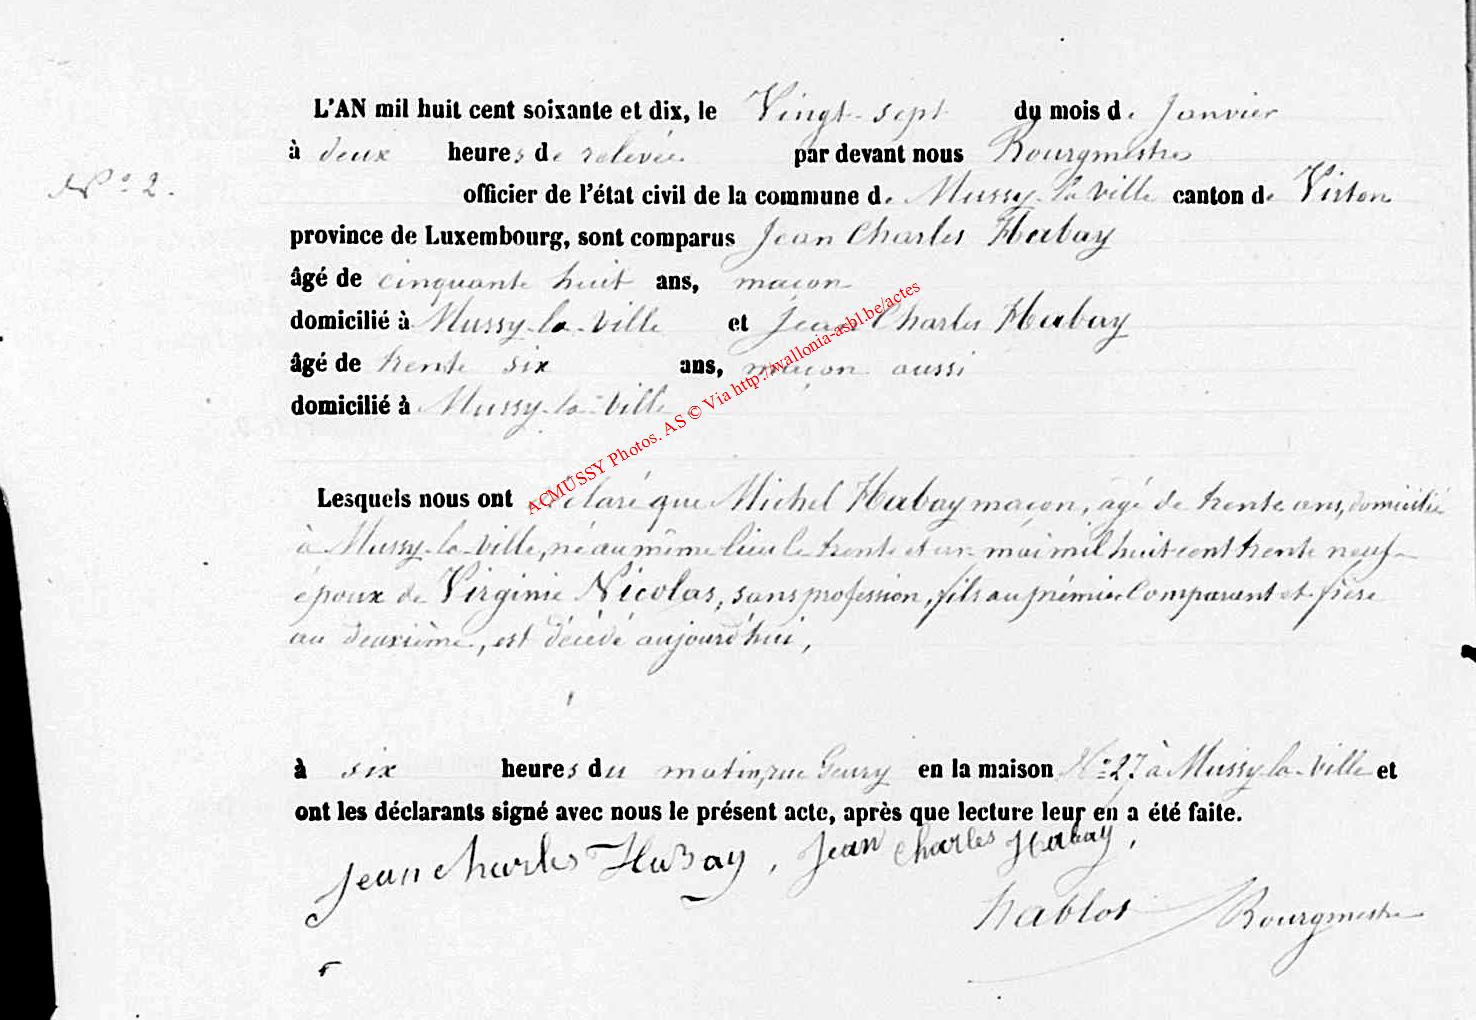 L'AN mil huit cent soixante et dix, le Vingt-sept du mois de Janvier
à deux heures de relevée par devant nous Bourgmestre
N° 2.
officier de l'état civil de la commune de Mussy-la-Ville canton de Virton
province de Luxembourg, sont comparus Jean Charles Habay
âgé de cinquante huit ans, maçon
domicilié à Mussy-la-Ville et Jean Charles Habay
âgé de trente six ans, maçon aussi
domicilié à Mussy-la-Ville
ACMUSSY Photos. AS © Via http://wallonia-asbl.be/actes
Lesquels nous ont déclaré que Michel Habay maçon, âgé de trente ans, domicilié
à Mussy-la-Ville, né au même lieu le trente et un mai mil huit cent trente neuf
époux de Virginie Nicolas, sans profession, fils au prémier Comparant et frère
au deuxième, est décédé aujourd'hui,
à six heures du matin, rue en la maison N° 27 à Mussy-la-Ville et
ont les déclarants signé avec nous le présent acte, après que lecture leur en a été faite.
Jean Charles Habay, Jean Charles Habay,
Bourgmestre